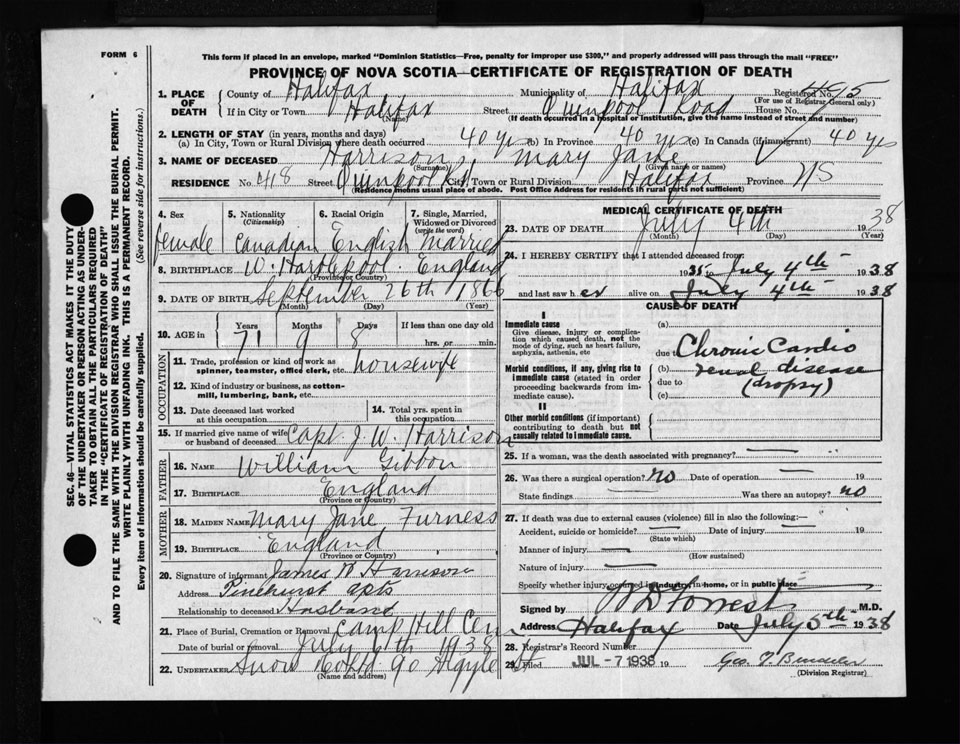 FORM 6
This form if placed in an envelope, marked "Dominion Statistics—Free, penalty for improper use $300," and properly addressed will pass through the mail "FREE"
PROVINCE OF NOVA SCOTIA—CERTIFICATE OF REGISTRATION OF DEATH
1. PLACE OF DEATH
County of Halifax Municipality of Halifax Registered No.
(For use of Registrar General only)
If in City or Town Halifax Street Quinpool Road House No.
(Name)
(If death occurred in a hospital or institution, give the name instead of street and number)
2. LENGTH OF STAY (in years, months and days)
(a) In City, Town or Rural Division where death occurred 40 yrs (b) In Province 40 yrs (c) In Canada (if immigrant) 40 yrs
3. NAME OF DECEASED Harrison Mary Jane
(Surname) (Given name or names)
RESIDENCE No. 418 Street Quinpool Rd City, Town or Rural Division Halifax Province NS
(Residence means usual place of abode. Post Office Address for residents in rural parts not sufficient)
SEC. 46—VITAL STATISTICS ACT MAKES IT THE DUTY
OF THE UNDERTAKER OR PERSON ACTING AS UNDER-
TAKER TO OBTAIN ALL THE PARTICULARS REQUIRED
IN THE "CERTIFICATE OF REGISTRATION OF DEATH"
AND TO FILE THE SAME WITH THE DIVISION REGISTRAR WHO SHALL ISSUE THE BURIAL PERMIT.
WRITE PLAINLY WITH UNFADING INK. THIS IS A PERMANENT RECORD.
Every item of information should be carefully supplied. (See reverse side for instructions.)
4. Sex 5. Nationality (Citizenship) 6. Racial Origin 7. Single, Married, Widowed or Divorced (write the word)
female Canadian English Married
8. BIRTHPLACE W. Hartlepool. England
(Province or Country)
9. DATE OF BIRTH September 26th 1866
(Month) (Day) (Year)
10. AGE in Years Months Days If less than one day old
71 9 8 hrs. or min.
OCCUPATION
11. Trade, profession or kind of work as spinner, teamster, office clerk, etc. housewife
12. Kind of industry or business, as cotton-mill, lumbering, bank, etc.
13. Date deceased last worked at this occupation
14. Total yrs. spent in this occupation
15. If married give name of wife or husband of deceased Capt J. W. Harrison
FATHER
16. NAME William Gibbon
17. BIRTHPLACE England
(Province or Country)
MOTHER
18. MAIDEN NAME Mary Jane Furness
19. BIRTHPLACE England
(Province or Country)
20. Signature of informant James W Harrison
Address Pinehurst apts
Relationship to deceased Husband
21. Place of Burial, Cremation or Removal Camp Hill Cem
Date of burial or removal July 6th 1938
22. UNDERTAKER Snow & Co Ltd 90 Argyle St
(Name and address)
MEDICAL CERTIFICATE OF DEATH
23. DATE OF DEATH July 4th 1938
(Month) (Day) (Year)
24. I HEREBY CERTIFY that I attended deceased from:
1935 to July 4th 1938
and last saw her alive on July 4th 1938
CAUSE OF DEATH
I
Immediate cause
Give disease, injury or complication which caused death, not the mode of dying, such as heart failure, asphyxia, asthenia, etc
Morbid conditions, if any, giving rise to immediate cause (stated in order proceeding backwards from immediate cause).
II
Other morbid conditions (if important) contributing to death but not causally related to immediate cause.
(a)
due to Chronic Cardio
(b) renal disease
due to (dropsy)
(c)
25. If a woman, was the death associated with pregnancy?
26. Was there a surgical operation? no Date of operation 19
State findings Was there an autopsy? no
27. If death was due to external causes (violence) fill in also the following:—
Accident, suicide or homicide? Date of injury 19
(State which)
Manner of injury
(How sustained)
Nature of injury
Specify whether injury occurred in industry, in home, or in public place
Signed by W D Forrest M.D.
Address Halifax Date July 5th 1938
28. Registrar's Record Number
29. Filed JUL -7 1938 19
(Division Registrar)